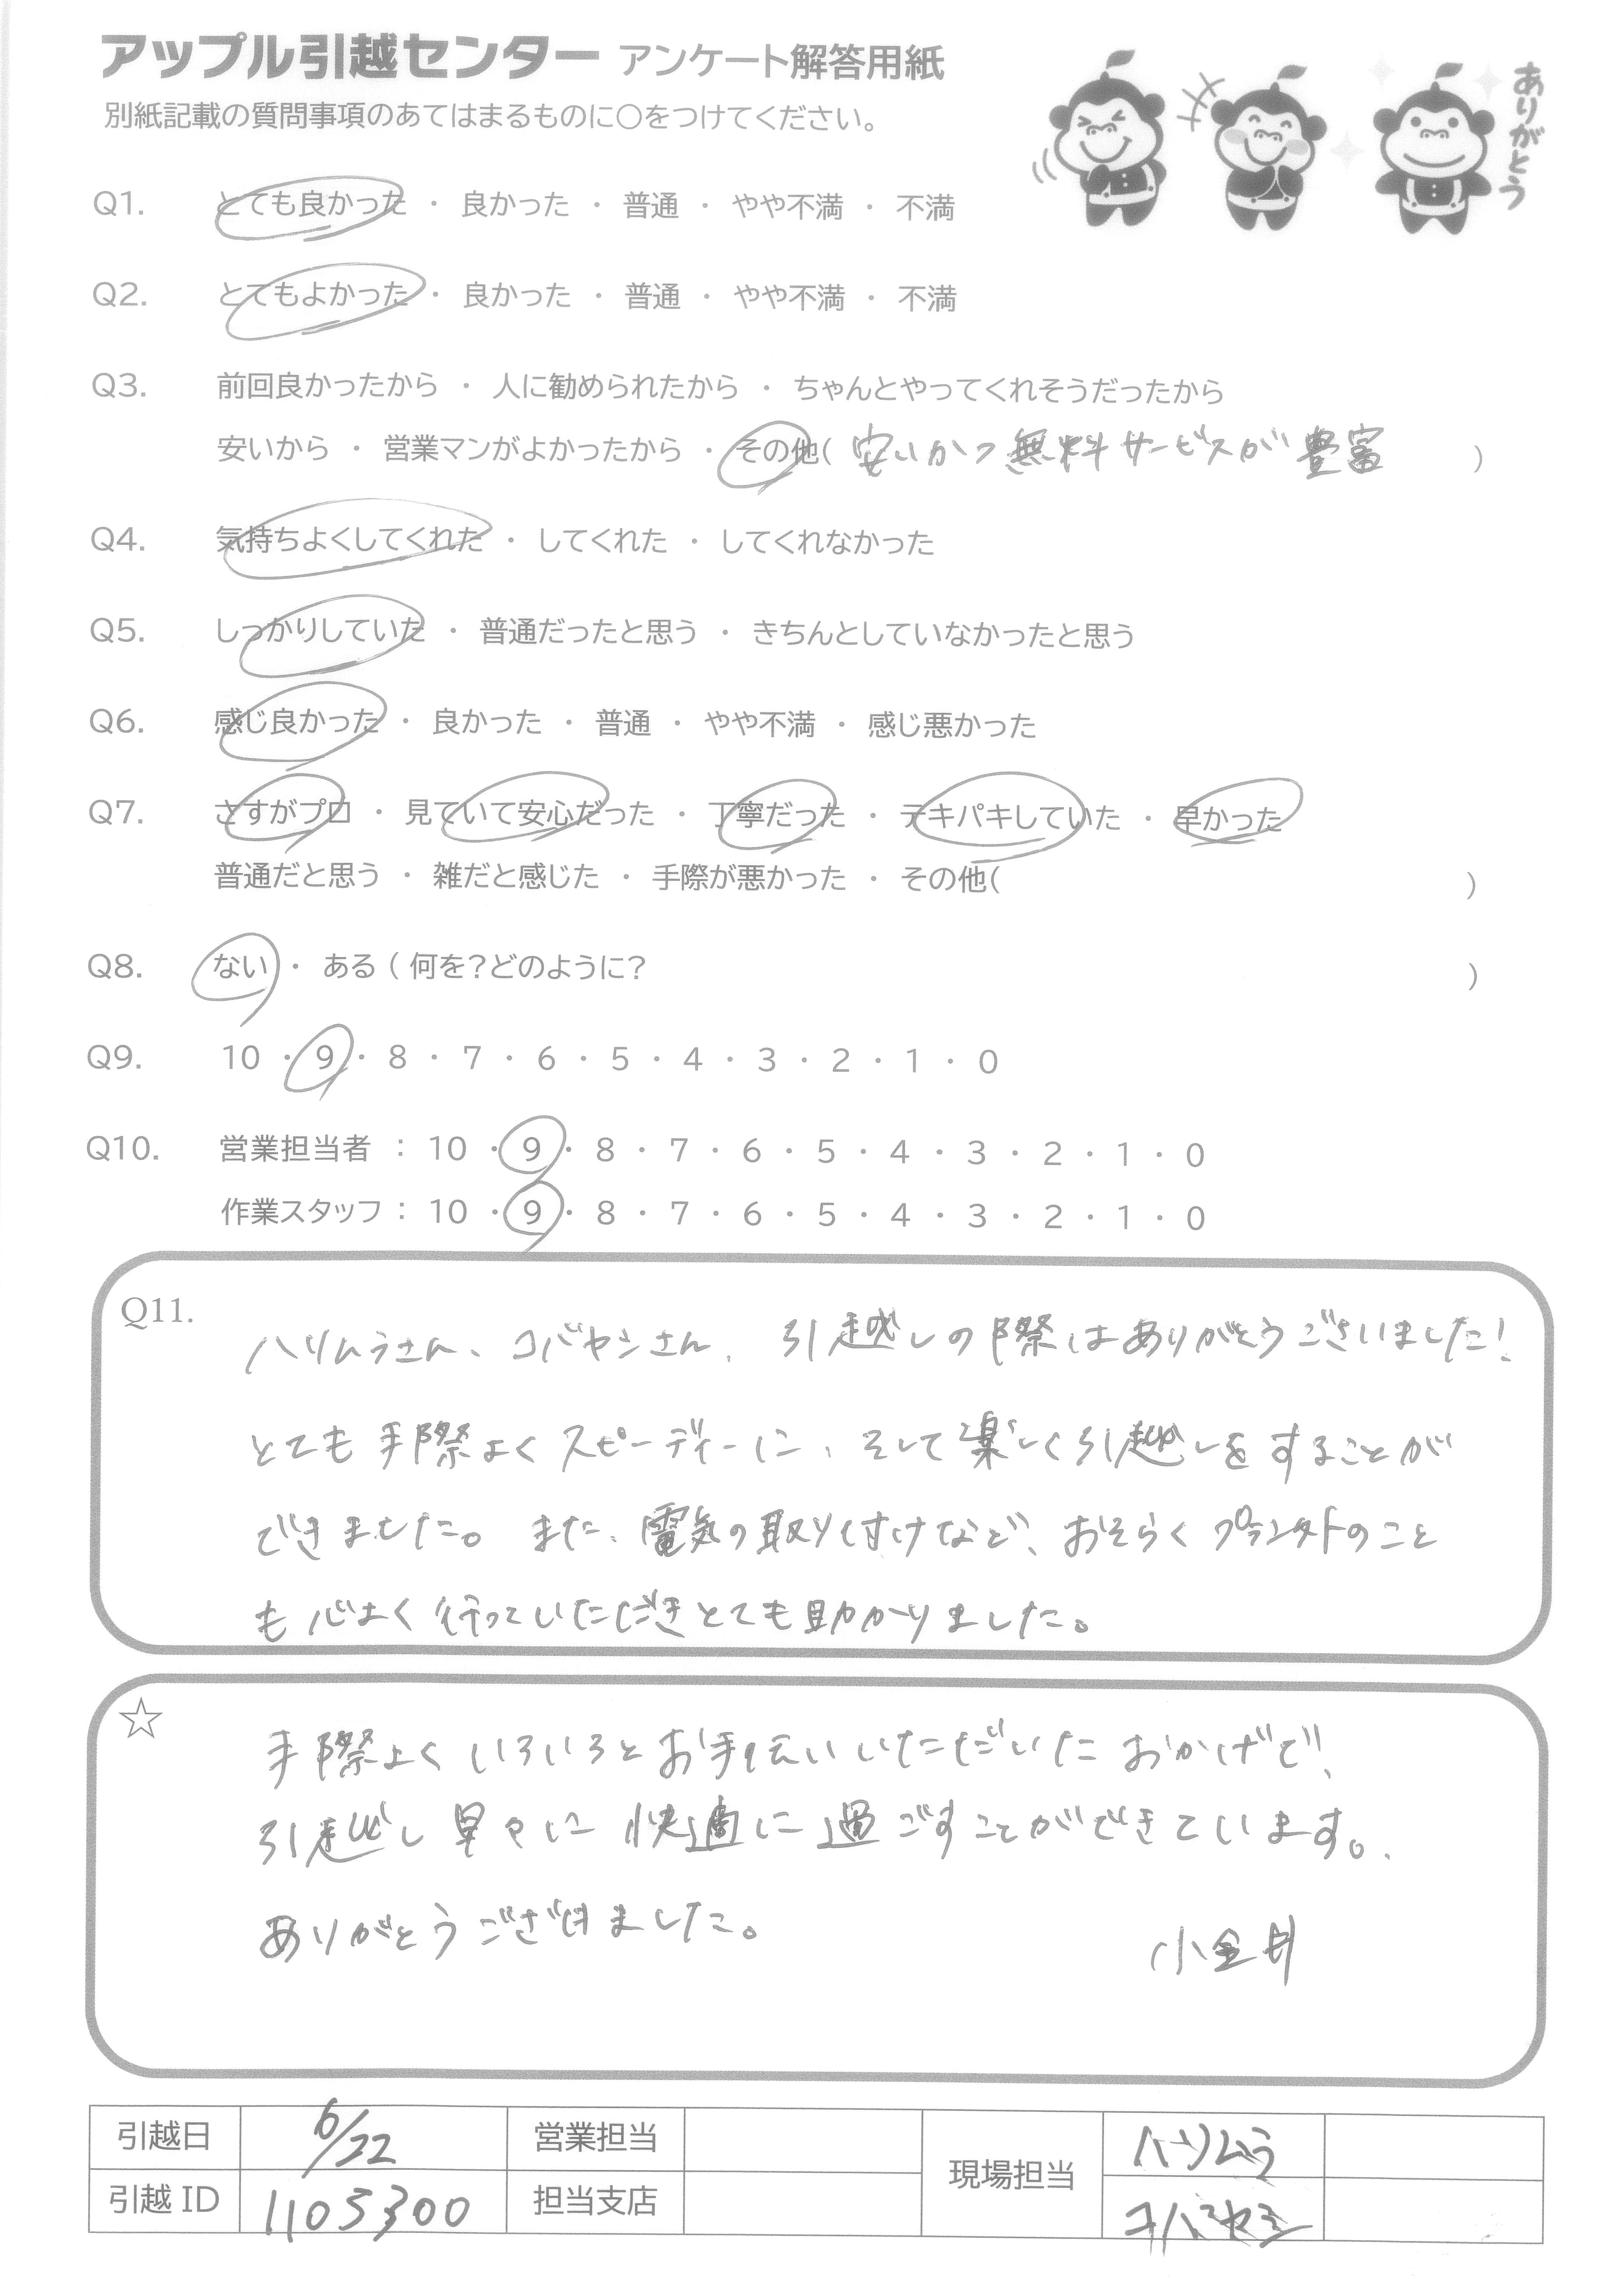 アップル引越センター アンケート解答用紙
別紙記載の質問事項のあてはまるものに○をつけてください。
ありがとう
Q1. とても良かった ・ 良かった ・ 普通 ・ やや不満 ・ 不満
Q2. とてもよかった ・ 良かった ・ 普通 ・ やや不満 ・ 不満
Q3. 前回良かったから ・ 人に勧められたから ・ ちゃんとやってくれそうだったから
安いから ・ 営業マンがよかったから ・ その他( 安いかつ無料サービスが豊富 )
Q4. 気持ちよくしてくれた ・ してくれた ・ してくれなかった
Q5. しっかりしていた ・ 普通だったと思う ・ きちんとしていなかったと思う
Q6. 感じ良かった ・ 良かった ・ 普通 ・ やや不満 ・ 感じ悪かった
Q7. さすがプロ ・ 見ていて安心だった ・ 丁寧だった ・ テキパキしていた ・ 早かった
普通だと思う ・ 雑だと感じた ・ 手際が悪かった ・ その他( )
Q8. ない ・ ある ( 何を?どのように? )
Q9. 10 ・ 9 ・ 8 ・ 7 ・ 6 ・ 5 ・ 4 ・ 3 ・ 2 ・ 1 ・ 0
Q10. 営業担当者 : 10 ・ 9 ・ 8 ・ 7 ・ 6 ・ 5 ・ 4 ・ 3 ・ 2 ・ 1 ・ 0
作業スタッフ : 10 ・ 9 ・ 8 ・ 7 ・ 6 ・ 5 ・ 4 ・ 3 ・ 2 ・ 1 ・ 0
Q11. ハリムラさん、コバヤシさん、引越しの際はありがとうございました!
とても手際よくスピーディーに、そして楽しく引越しをすることが
できました。また、電気の取り付けなど、おそらくプラン外のこと
も心よく行っていただきとても助かりました。
☆ 手際よくいろいろとお手伝いいただいたおかげで、
引越し早々に快適に過ごすことができています。
ありがとうございました。
小金井
引越日 6/22 営業担当 現場担当 ハリムラ
引越ID 1105300 担当支店 コバヤシ